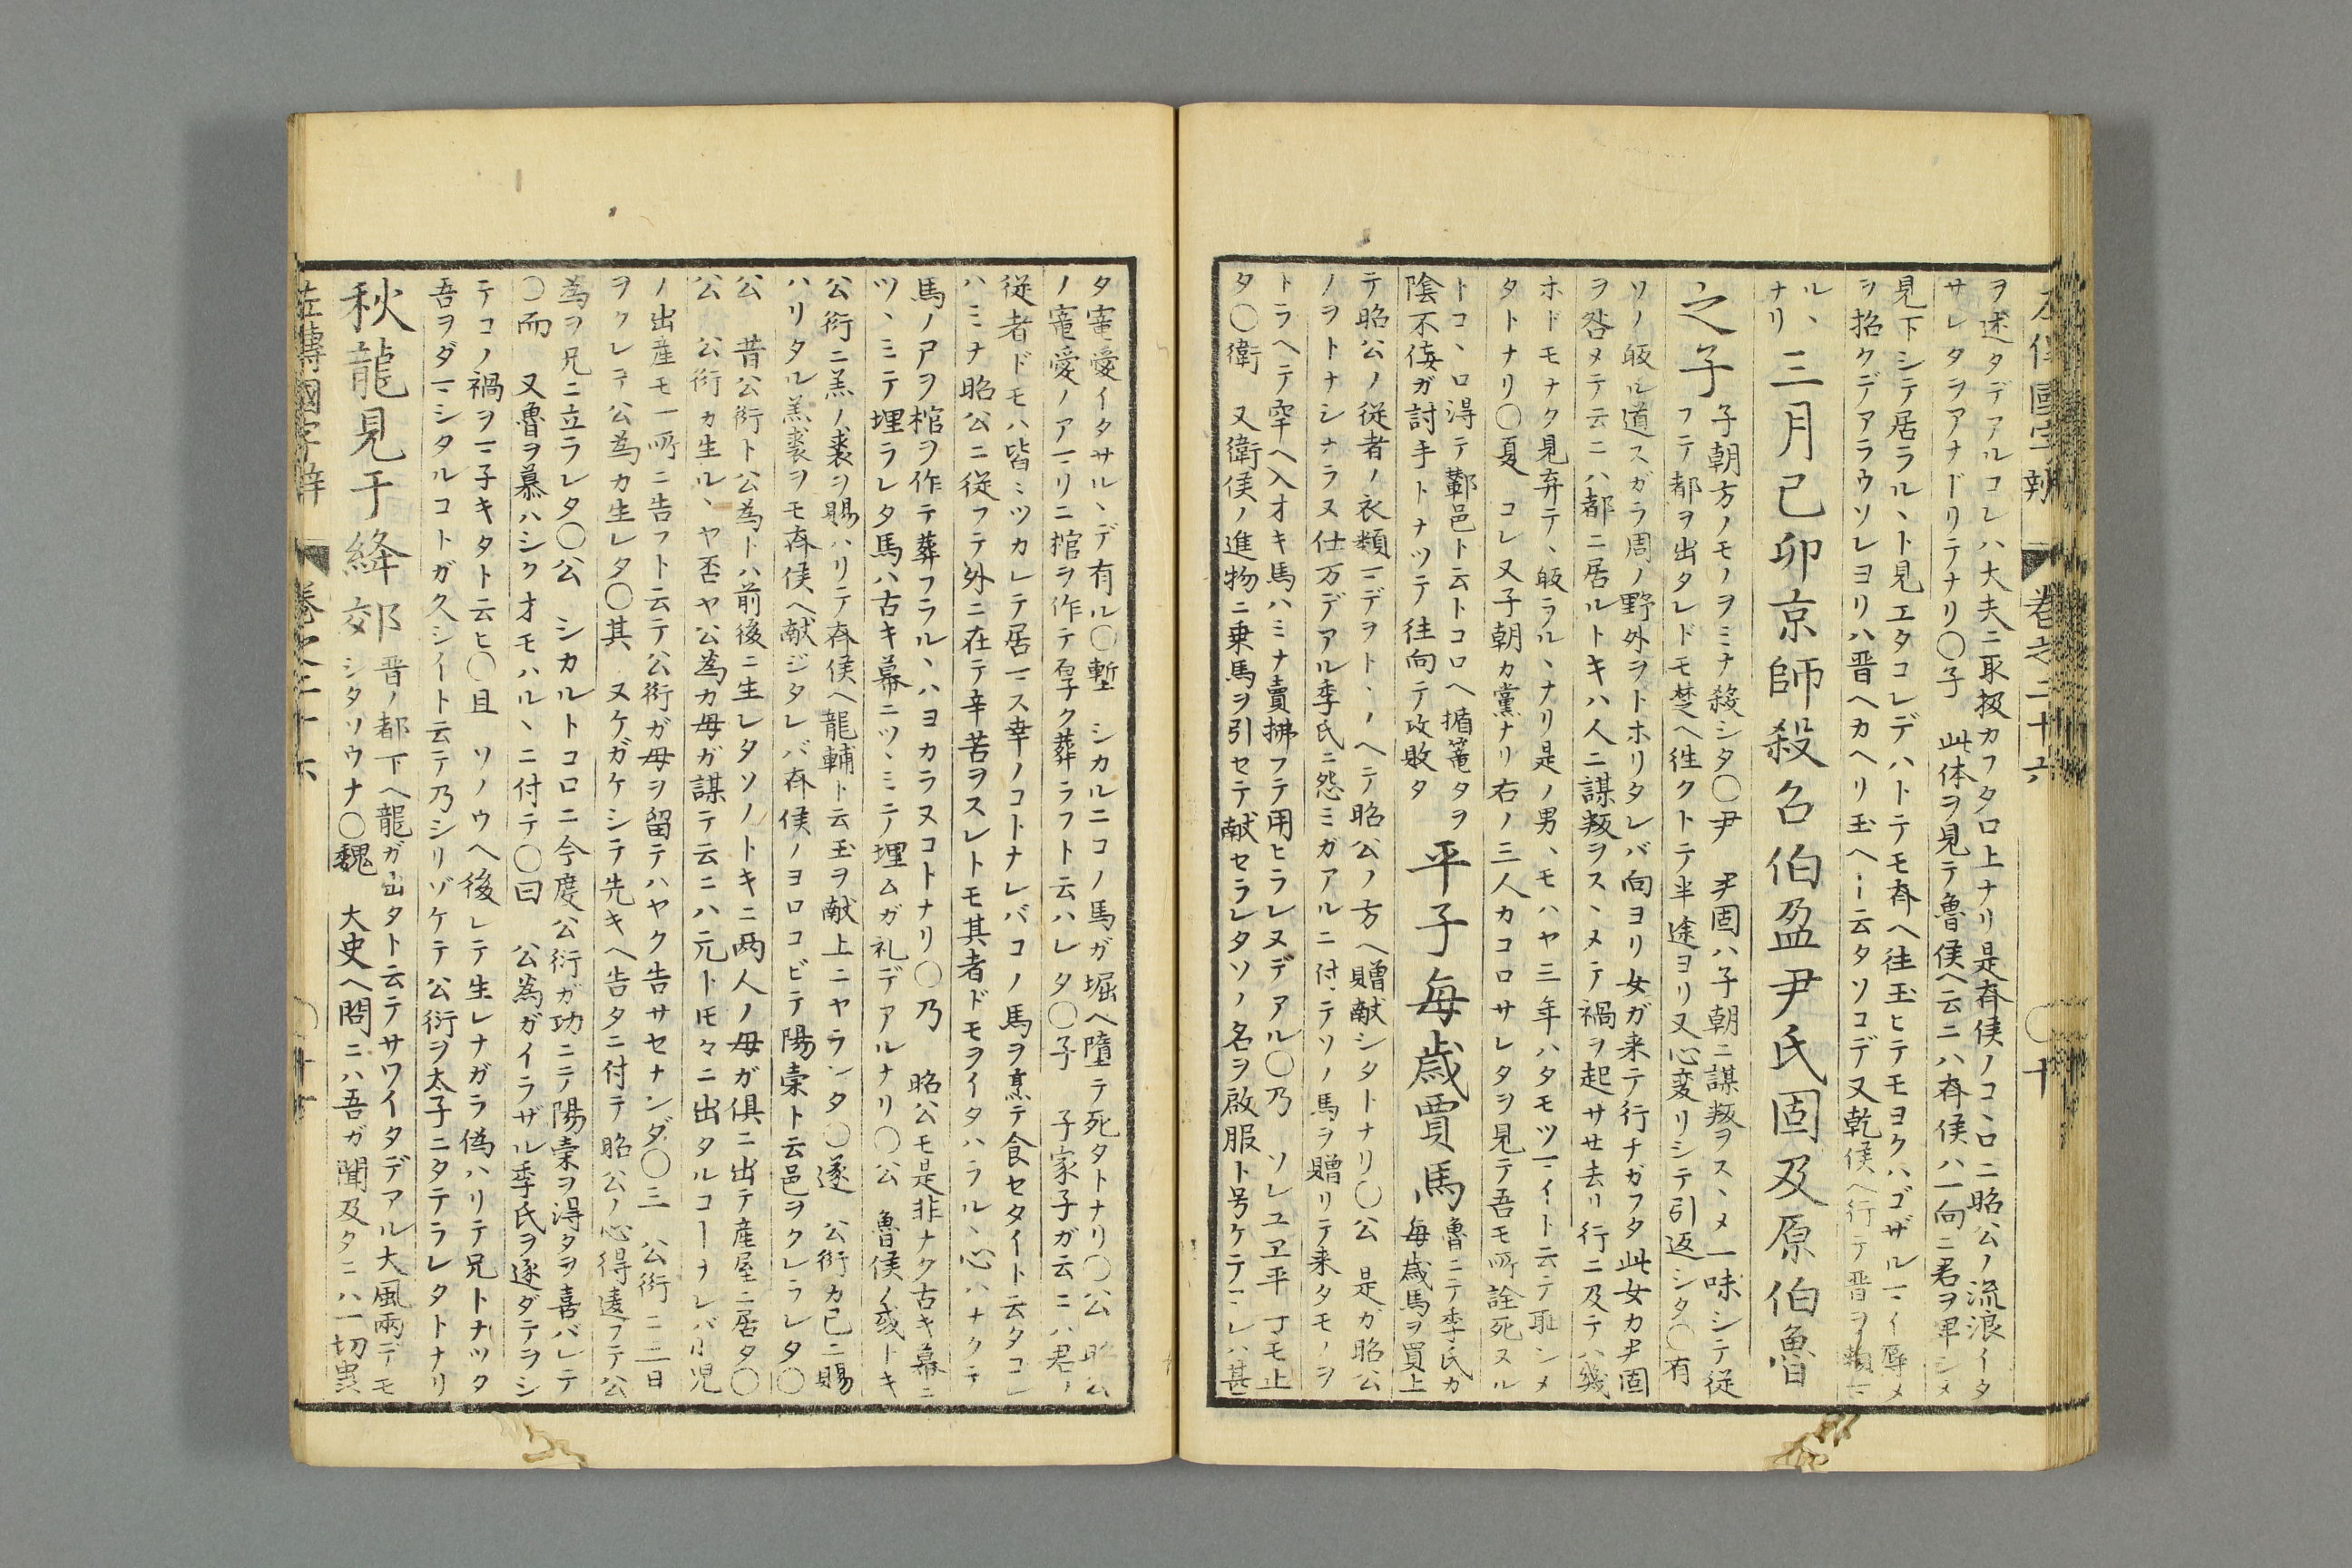 ヲ述タデアルコレハ大夫ニ取扱カフタ口上ナリ是斉侯ノコヽロニ昭公ノ流浪イタ
サレタヲアナドリテナリ〇子 此体ヲ見テ魯侯ヘ云ニハ斉侯ハ一向ニ君ヲ卑シメ
見下シテ居ラルヽト見エタコレデハトテモ斉ヘ往玉ヒテモヨクハゴザルマイ辱メ
ヲ招クデアラウソレヨリハ晋ヘカヘリ玉ヘト云タソコデ又乾侯ヘ行テ晋ヲ頼マ
ルヽ
ナリ
三月己卯京師殺召伯盈尹氏固及原伯魯
之子
子朝方ノモノヲミナ殺シタ〇尹 尹固ハ子朝ニ謀叛ヲスヽメ一味シテ従
フテ都ヲ出タレドモ楚ヘ徃クトテ半途ヨリ又心変リシテ引返シタ〇有
ソノ皈ル道スガラ周ノ野外ヲトホリタレバ向ヨリ女ガ来テ行チガフタ此女カ尹固
ヲ咎メテ云ニハ都ニ居ルトキハ人ニ謀叛ヲスヽメテ禍ヲ起サセ去リ行ニ及テハ幾
ホドモナク見弃テヽ皈ラルヽナリ是ノ男ヽモハヤ三年ハタモツマイト云テ耻シメ
タトナリ〇夏 コレ又子朝カ黨ナリ右ノ三人カコロサレタヲ見テ吾モ所詮死ヌル
トコヽロ得テ鄻邑ト云トコロヘ楯篭タヲ
陰不侫ガ討手トナツテ往向テ攻敗タ
平子毎歳賈馬
魯ニテ季氏カ
毎歳馬ヲ買上
テ昭公ノ従者ノ衣類マデヲトヽノヘテ昭公ノ方ヘ贈献シタトナリ〇公 是ガ昭公
ノヲトナシナラヌ仕万デアル季氏ニ怨ミガアルニ付テソノ馬ヲ贈リテ来タモノヲ
トラヘテ窂ヘ入オキ馬ハミナ賣拂フテ用ヒラレヌデアル〇乃 ソレユヱ平 丁モ止
タ〇衛 又衛侯ノ進物ニ乗馬ヲ引セテ献セラレタソノ名ヲ啟服ト号ケテマレハ甚
左傳國字辨 巻之二十六 〇十
タ寵愛イタサルヽデ有ル〇塹 シカルニコノ馬ガ堀ヘ墮テ死タトナリ〇公 昭公
ノ寵愛ノアマリニ棺ヲ作テ厚ク葬ラフト云ハレタ〇子 子家子ガ云ニハ君ノ
従者ドモハ皆ミツカレテ居マス幸ノコトナレバコノ馬ヲ烹テ食セタイト云タコレ
ハミナ昭公ニ従フテ外ニ在テ辛苦ヲスレトモ其者ドモヲイタハラルヽ心ハナクテ
馬ノアヲ棺ヲ作テ葬フラルヽハヨカラヌコトナリ〇乃 昭公モ是非ナク古キ幕ニ
ツヽミテ埋ラレタ馬ハ古キ幕ニツヽミニテ埋ムガ礼デアルナリ〇公 魯侯ノ或トキ
公衍ニ羔ノ裘ヲ賜ハリテ斉侯ヘ龍輔ト云玉ヲ献上ニヤランタ〇遂 公衍カ已ニ賜
ハリタル羔裘ヲモ斉侯ヘ献ジタレバ斉侯ノヨロコビテ陽榖ト云邑ヲクレラレタ〇
公 昔公衍ト公為トハ前後ニ生レタソノトキニ两人ノ母ガ俱ニ出テ産屋ニ居タ〇
公 公衍カ生ルヽヤ否ヤ公為カ母ガ謀テ云ニハ元トモ々ニ出タルコーナレバ小児
ノ出産モ一所ニ告フト云テ公衍ガ母ヲ留テハヤク告サセナンダ〇三 公衍ニ二日
ヲクレテ公為カ生レタ〇其 ヌケガケシテ先キヘ告タニ付テ昭公ノ心得違フテ公
為ヲ兄ニ立ラレタ〇公 シカルトコロニ今度公衍ガ功ニテ陽榖ヲ得タヲ喜バレテ
〇而 又魯ヲ慕ハシクオモハルヽニ付テ〇曰 公為ガイラザル季氏ヲ逐ダテヲシ
テコノ禍ヲマ子キタト云ヒ〇且 ソノウヘ後レテ生レナガラ偽ハリテ兄トナツタ
吾ヲダマシタルコトガ久シイト云テ乃シリゾケテ公衍ヲ太子ニタテラレタトナリ
秋龍見于絳郊
晋ノ都下ヘ龍ガ出タト云テサワイタデアル大風雨デモ
シタソウナ〇魏 大史ヘ問ニハ吾ガ聞及タニハ一切蟲
左傳國字辨 巻之二十六 〇十一